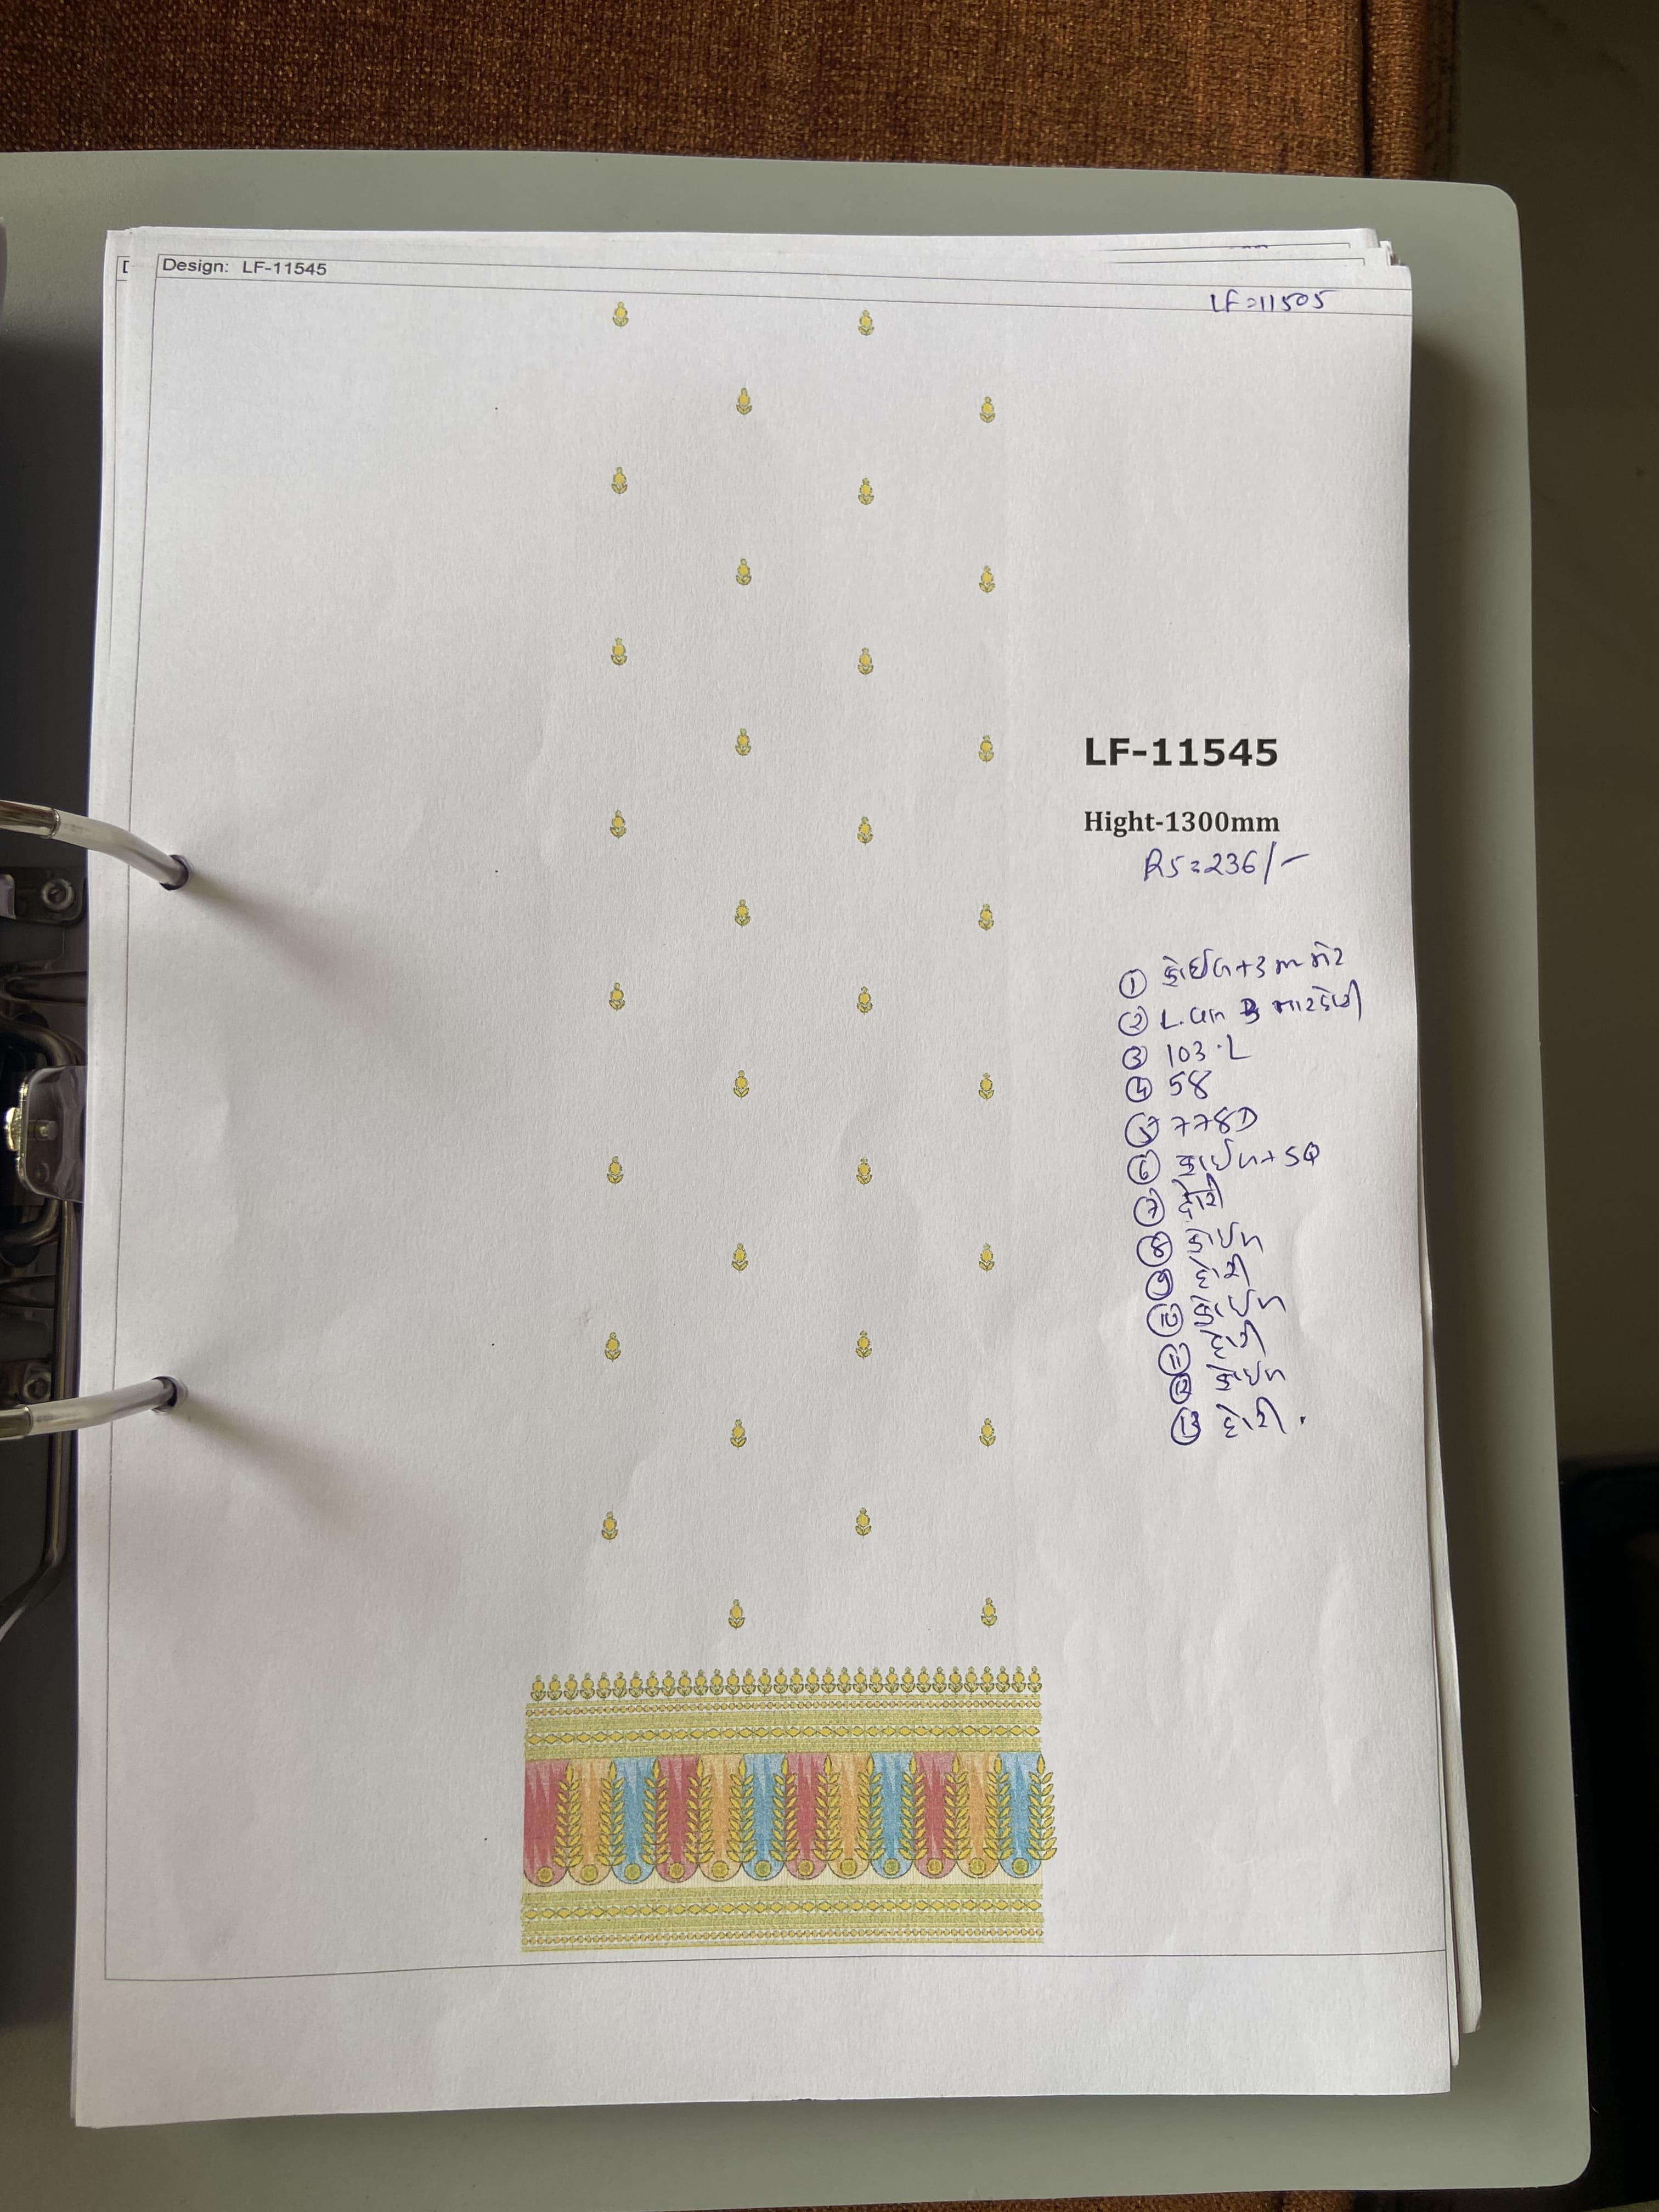 Design: LF-11545
LF=11505
LF-11545
Hight-1300mm
Rs=236/-
① કોઈન+3mm
② L.
③ 103.L
④ 58
⑤ 778D
⑥ કોઈન+SQ
⑦ દોરી
⑧ કોઈન
⑨ દોરી
⑩ કોઈન
⑪ દોરી
⑫ કોઈન
⑬ દોરી.